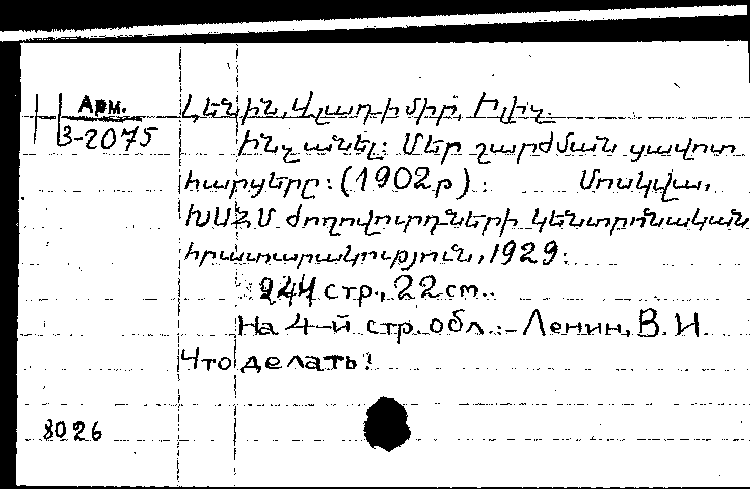 Арм.
3-2075
Լենին, Վլադիմիր, Իլիչ.
Ինչ անել: Մեր շարժման ցավոտ
հարցերը: (1902թ): Մոսկվա,
ԽՍՀՄ ժողովուրդների կենտրոնական
հրատարակություն, 1929:
244 стр., 22 см..
На 4-й стр. обл.:- Ленин, В.И.
Что делать?
8026